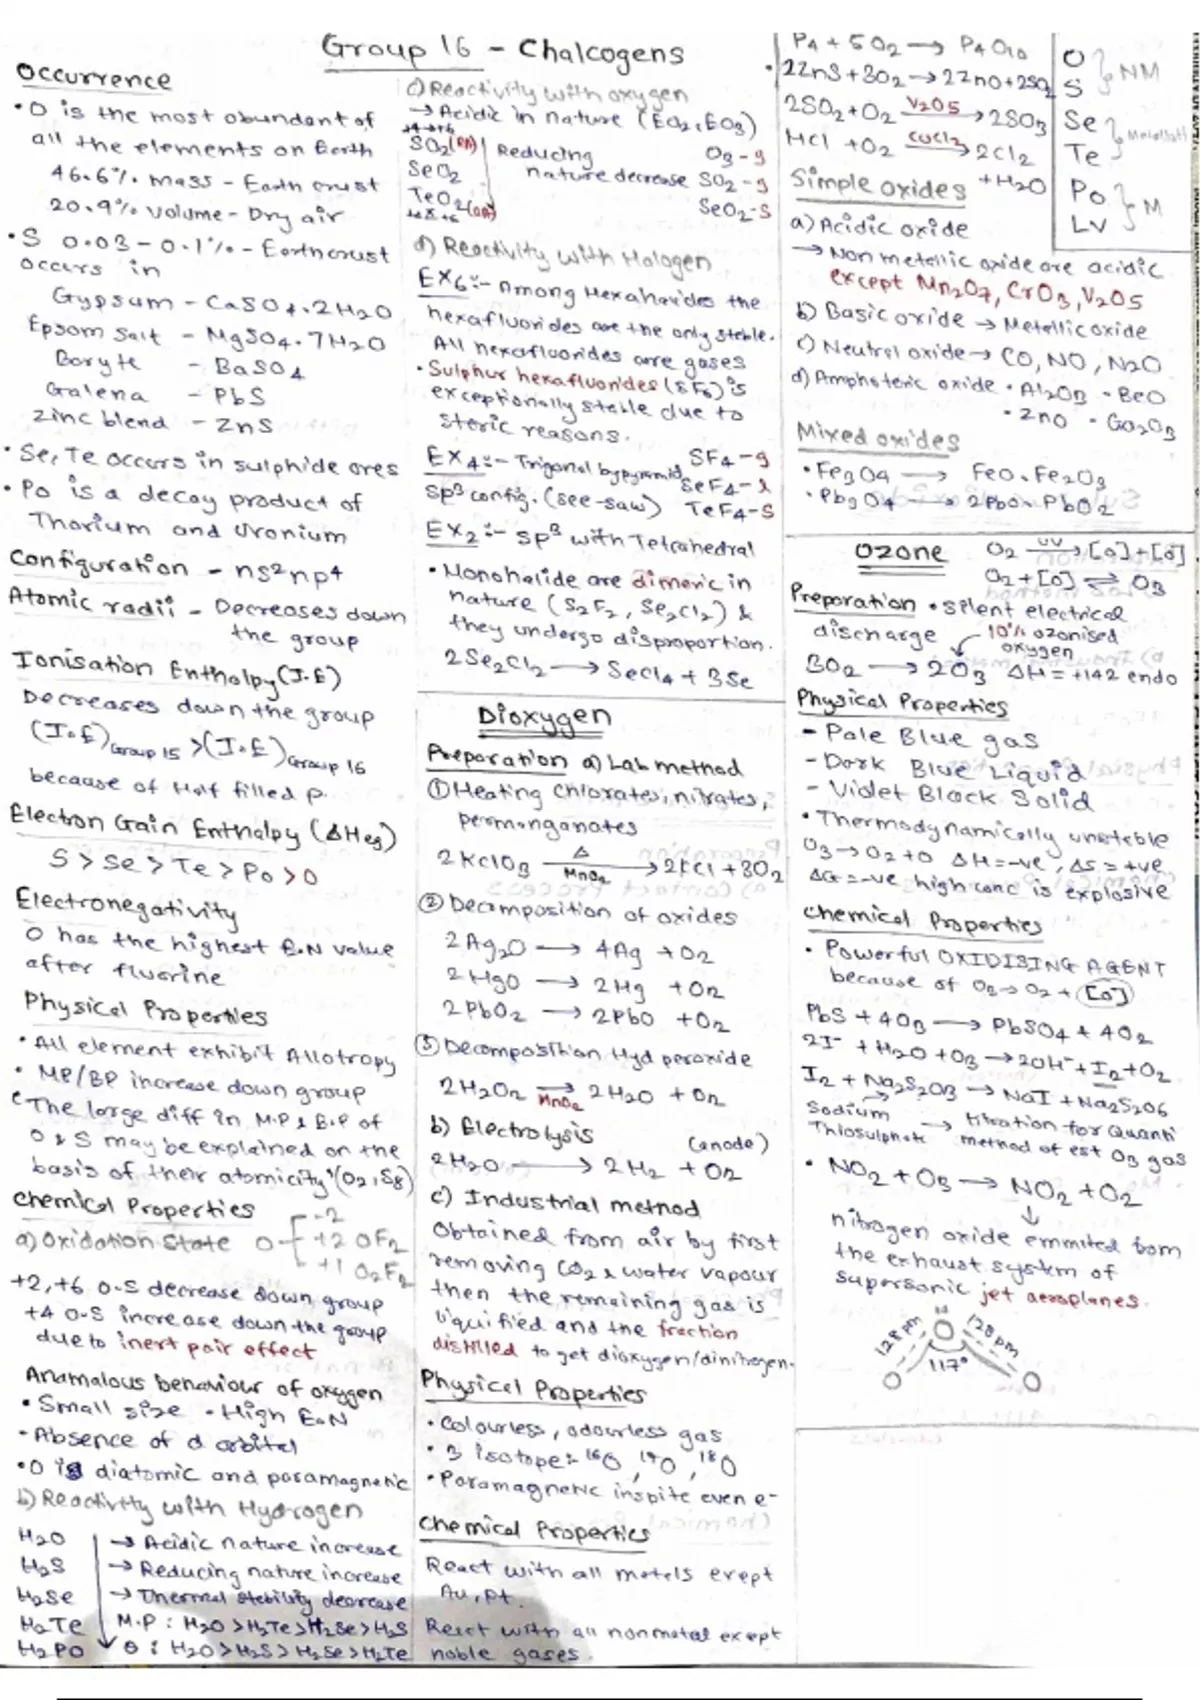 Group 16 - Chalcogens
Occurrence
• O is the most abundant of
all the elements on Earth
46.6% mass - Earth crust
20.9% volume - Dry air
• S 0.03 - 0.1% - Earth crust
occurs in
Gypsum - CaSO4.2H2O
Epsom Salt - MgSO4.7H2O
Baryte - BaSO4
Galena - PbS
Zinc blend - ZnS
• Se, Te occurs in sulphide ores
• Po is a decay product of
Thorium and Uronium
Configuration - ns2np4
Atomic radii - Decreases down
the group
Ionisation Enthalpy (I.E)
Decreases down the group
(I.E)Group 15 > (I.E)Group 16
because of Half filled p.
Electron Gain Enthalpy (ΔHeg)
S > Se > Te > Po > O
Electronegativity
O has the highest E.N value
after fluorine
Physical Properties
• All element exhibit Allotropy
• MP/BP increase down group
• The large diff in M.P & B.P of
O & S may be explained on the
basis of their atomicity (O2, S8)
Chemical Properties
a) Oxidation State O -2
+2 OF2
+1 O2F2
+2, +6 O.S decrease down group
+4 O.S increase down the group
due to inert pair effect
Anamalous behaviour of oxygen
• Small size • High E.N
• Absence of d orbital
• O is diatomic and paramagnetic
b) Reactivity with Hydrogen
H2O → Acidic nature increase
H2S → Reducing nature increase
H2Se → Thermal stability decrease
H2Te M.P : H2O > H2Te > H2Se > H2S
H2PO θ : H2O > H2S > H2Se > H2Te
c) Reactivity with oxygen
→ Acidic in nature (EO2, EO3)
+4→+6
SO2 (RA) Reducing O3 - g
SeO2 nature decrease SO2 - g
TeO2 (OA) SeO2 - S
d) Reactivity with Halogen
EX6 :- Among Hexahalides the
hexafluorides are the only stable.
All hexafluorides are gases
• Sulphur hexafluorides (SF6) is
exceptionally stable due to
steric reasons.
EX4 :- Trigonal bypyramid SF4 - g
SeF4 - l
sp3 config. (see-saw) TeF4 - S
EX2 :- sp3 with Tetrahedral
• Monohalide are dimeric in
nature (S2F2, Se2Cl2) &
they undergo disproportion.
2Se2Cl2 → SeCl4 + 3Se
Dioxygen
Preparation a) Lab method
① Heating Chlorates, nitrates,
permanganates
2KClO3 Δ MnO2 → 2KCl + 3O2
② Decomposition of oxides
2Ag2O → 4Ag + O2
2HgO → 2Hg + O2
2PbO2 → 2PbO + O2
③ Decomposition Hyd peroxide
2H2O2 MnO2 ⇌ 2H2O + O2
b) Electrolysis (anode)
2H2O → 2H2 + O2
c) Industrial method
Obtained from air by first
removing CO2 & water vapour
then the remaining gas is
liquified and the fraction
distilled to get dioxygen/dinitrogen.
Physical Properties
• Colourless, odourless gas
• 3 isotope :- 16O, 17O, 18O
• Paramagnetic inspite even e-
Chemical Properties
React with all metals exept
Au, Pt.
React with all nonmetal exept
noble gases.
P4 + 5O2 → P4O10
• 2ZnS + 3O2 → 2ZnO + 2SO2
2SO2 + O2 V2O5 → 2SO3
HCl + O2 CuCl2 → 2Cl2
+ H2O
O
S } NM
Se
Te
Po
Lv } M
Simple oxides
a) Acidic oxide
→ Non metallic oxide are acidic
except Mn2O7, CrO3, V2O5
b) Basic oxide → Metallic oxide
c) Neutral oxide → CO, NO, N2O
d) Amphoteric oxide • Al2O3 • BeO
• ZnO • Ga2O3
Mixed oxides
• Fe3O4 → FeO.Fe2O3
• Pb3O4 → 2PbO.PbO2
Ozone O2 UV → [O] + [O]
O2 + [O] ⇌ O3
Preparation • Silent electrical
discharge 10% ozonised
oxygen
3O2 → 2O3 ΔH = +142 endo
Physical Properties
- Pale Blue gas
- Dark Blue Liquid
- Violet Black Solid
• Thermodynamically unstable
O3 → O2 + O ΔH = -ve, ΔS = +ve
ΔG = -ve high conc is explosive
Chemical Properties
• Powerful OXIDISING AGENT
because of O3 → O2 + [O]
PbS + 4O3 → PbSO4 + 4O2
2I- + H2O + O3 → 2OH- + I2 + O2
I2 + Na2S2O3 → NaI + Na2S2O6
Sodium Thiosulphate → titration for Quanti
method of est O3 gas
• NO2 + O3 → NO2 + O2
nitrogen oxide emmited from
the exhaust system of
supersonic jet aeroplanes.
128 pm 128 pm
117°